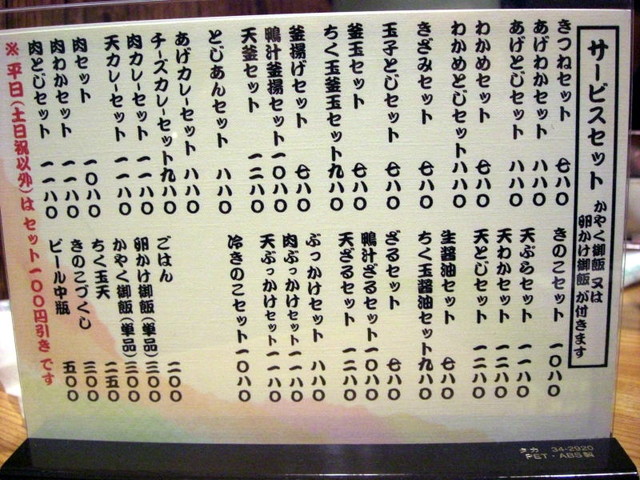 サービスセット
かやく御飯 又は
卵かけ御飯 が付きます
きつねセット 七八〇
あげわかセット 八八〇
あげとじセット 八八〇
わかめセット 七八〇
わかめとじセット 八八〇
きざみセット 七八〇
玉子とじセット 七八〇
釜玉セット 七八〇
ちく玉釜玉セット 九八〇
釜揚げセット 七八〇
鴨汁釜揚セット 一〇八〇
天釜セット 一二八〇
とじあんセット 八八〇
あげカレーセット 八八〇
チーズカレーセット 九八〇
肉カレーセット 一一八〇
天カレーセット 一一八〇
肉セット 一〇八〇
肉わかセット 一一八〇
肉とじセット 一一八〇
きのこセット 一〇八〇
天ぷらセット 一一八〇
天わかセット 一二八〇
天とじセット 一二八〇
生醤油セット 七八〇
ちく玉醤油セット 九八〇
ざるセット 七八〇
鴨汁ざるセット 一〇八〇
天ざるセット 一二八〇
ぶっかけセット 八八〇
肉ぶっかけセット 一一八〇
天ぶっかけセット 一一八〇
冷きのこセット 一〇八〇
ごはん 二〇〇
卵かけ御飯(単品) 三〇〇
かやく御飯(単品) 三〇〇
ちく玉天 二五〇
きのこづくし 三〇〇
ビール中瓶 五〇〇
※平日(土日祝以外)はセット一〇〇円引きです
タカ 34-2920
PET・ABS製